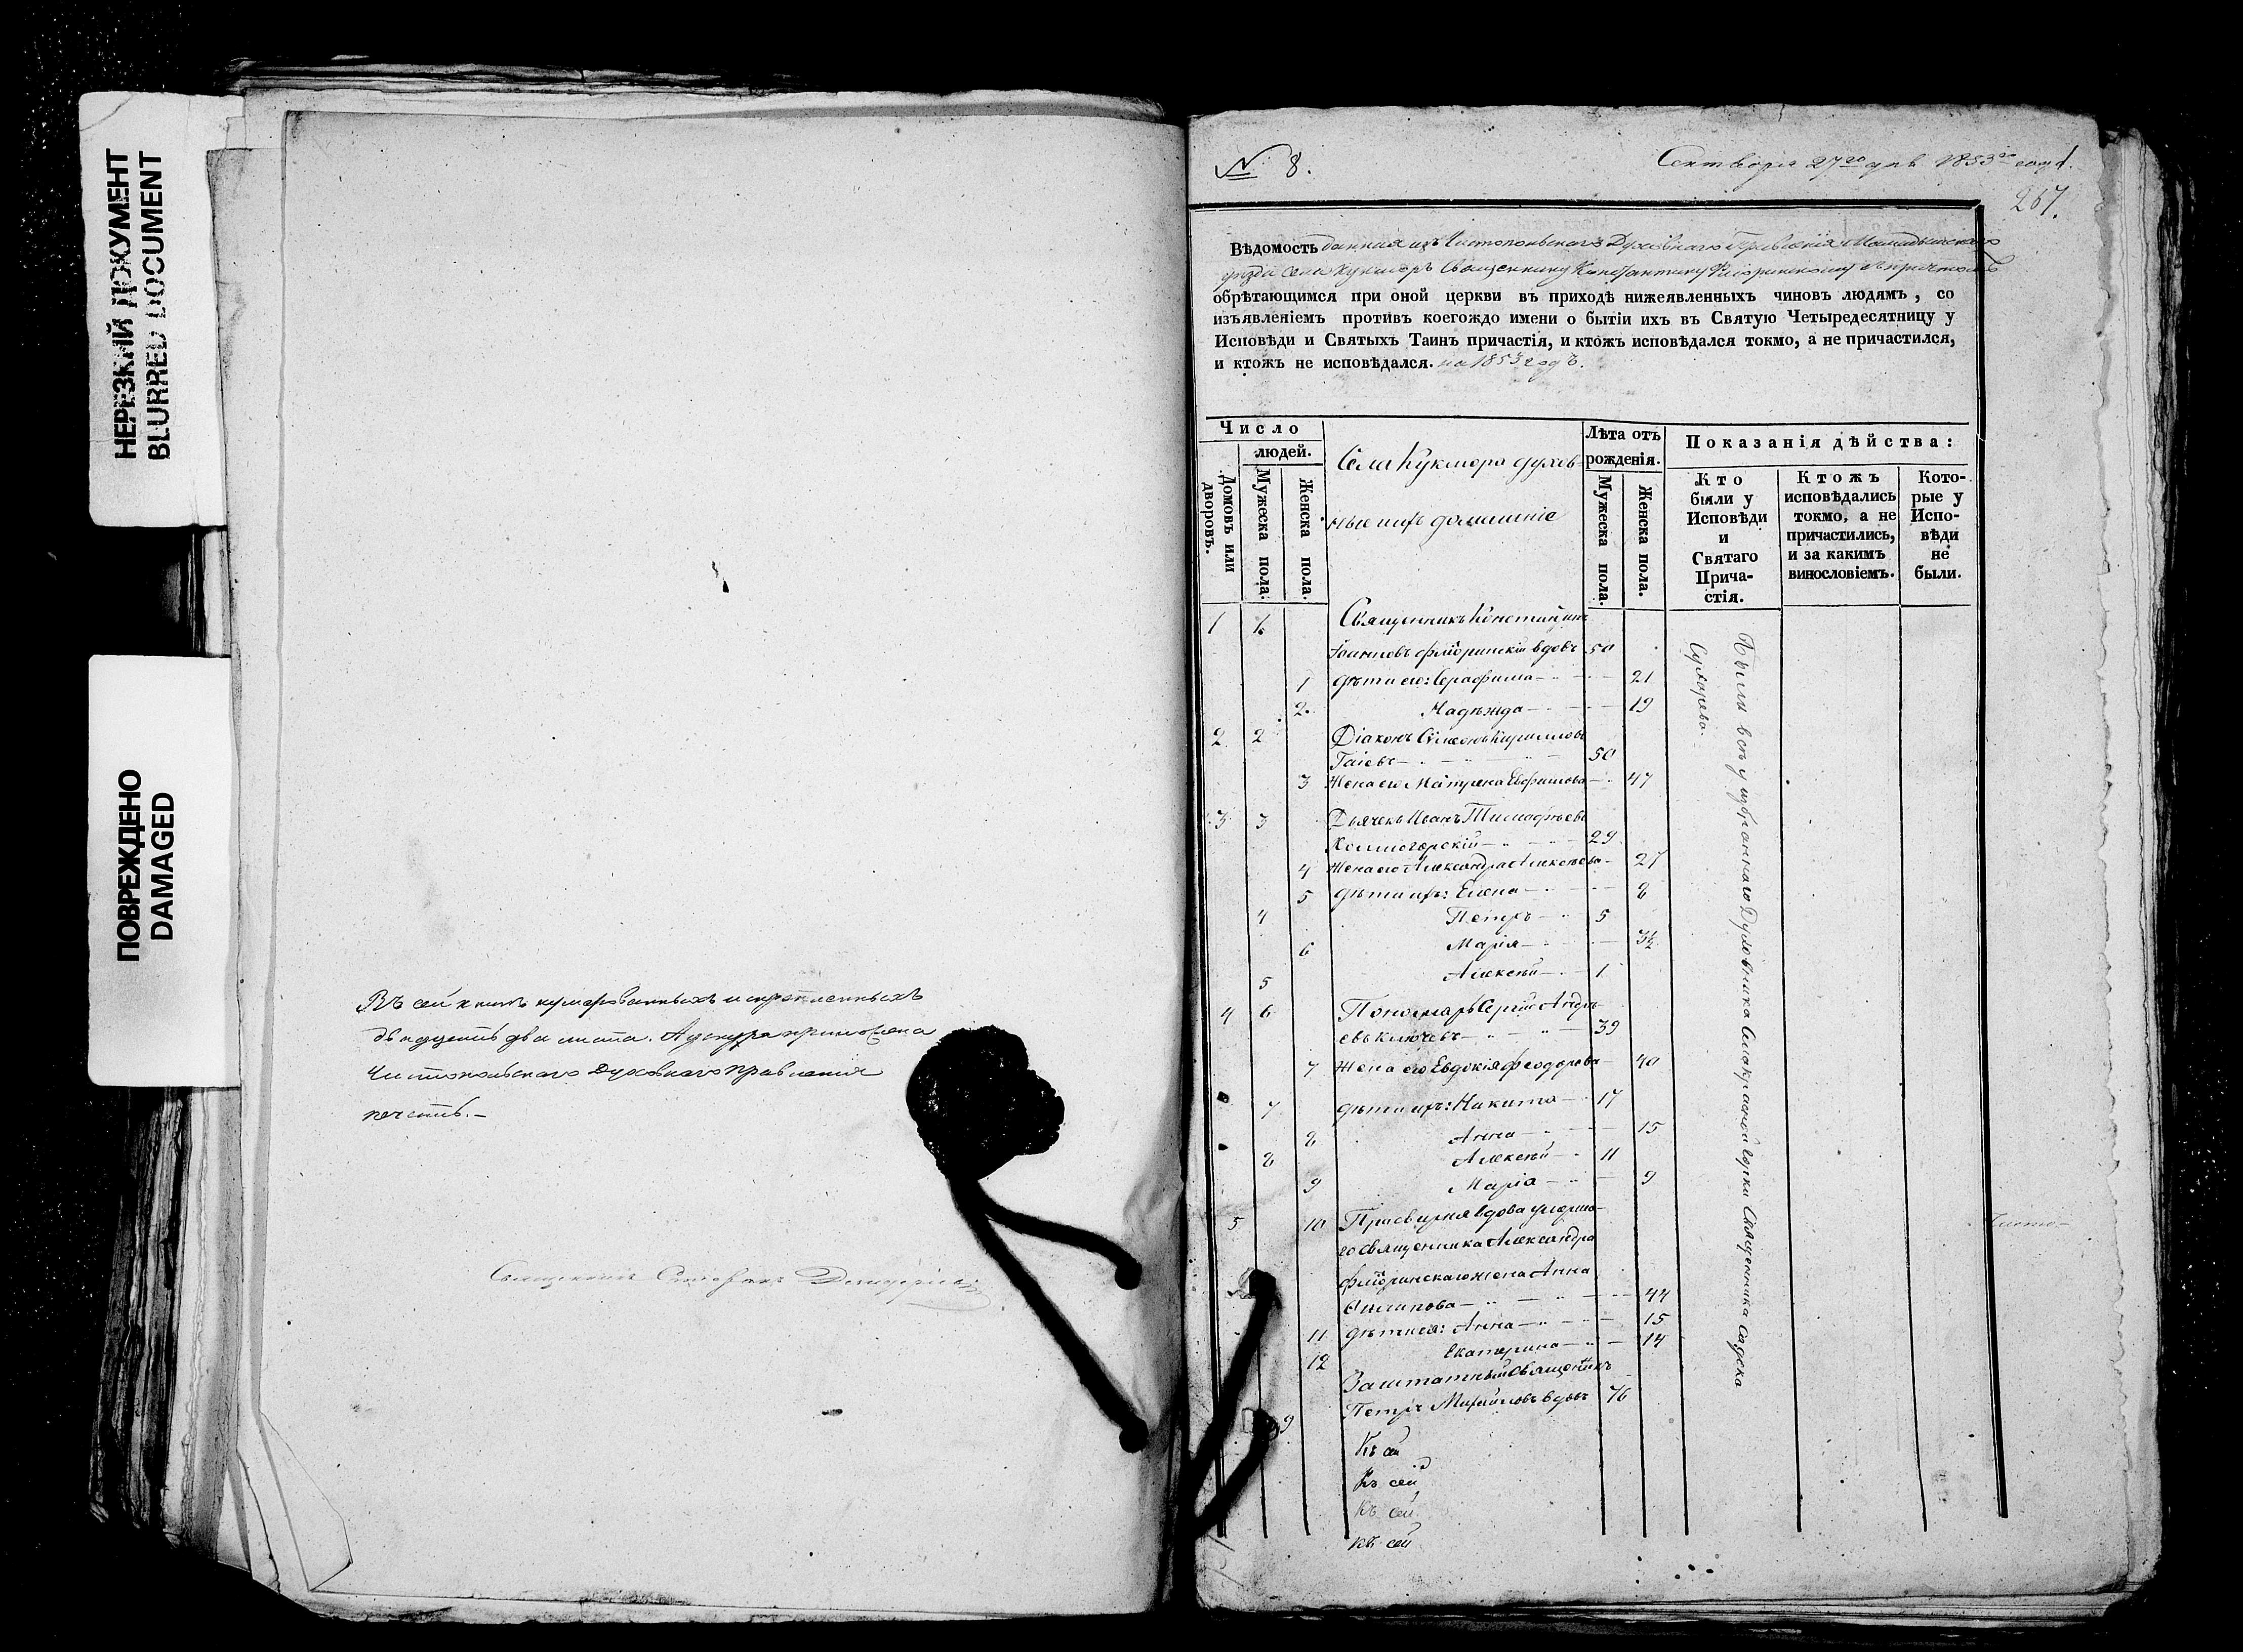 НЕРЕЗКИЙ ДОКУМЕНТ
BLURRED DOCUMENT
ПОВРЕЖДЕНО
DAMAGED
Въ сей книгѣ нумерованныхъ и скрепленныхъ
двадцать два листа. А у шнура приложена
Чистопольскаго Духовнаго Правленія
печать. –
Священникъ
№ 8.
Сентября 27го дня 1853го года.
267.
Вѣдомость данная изъ Чистопольскаго Духовнаго Правленія Мамадышскаго
уезда села Кукморъ Священнику Константину Флоринскому съ причтомъ
обрѣтающимся при оной церкви въ приходѣ нижеявленныхъ чиновъ людямъ, со
изъявленіемъ противъ коегождо имени о бытіи ихъ въ Святую Четыредесятницу у
Исповѣди и Святыхъ Таинъ причастія, и ктожъ исповѣдался токмо, а не причастился,
и ктожъ не исповѣдался. на 1853 годъ.
Число
людей.
Домовъ или дворовъ.
Мужеска пола.
Женска пола.
Села Кукмора духов-
ные и ихъ домашніе
Лѣта отъ рожденія.
Мужеска пола.
Женска пола.
Показанія дѣйства:
Кто были у Исповѣди и Святаго Прича-стія.
Ктожъ исповѣдались токмо, а не причастились, и за какимъ винословіемъ.
Кото-рые у Испо-вѣди не были.
1 1 Священникъ Константинъ
Іоанновъ Флоринскій вдовъ 50
1 Дѣти его: Серафима 21
2 Надежда 19
2 2 Діаконъ Симеонъ Кирилловъ
50
3 Жена его Матрена Евфимова 47
3 3 Дьячекъ Иванъ Тимофѣевъ
Холмогорскій 29
4 Жена его Александра Алексѣева 27
5 Дѣти ихъ: Елена 8
4 Петръ 5
6 Марія 3½
5 Алексѣй 1
4 6 Пономарь Сергій Андрѣ-
евъ Ключевъ 39
7 Жена его Евдокія Феодорова 40
7 Дѣти ихъ: Никита 17
8 Анна 15
8 Алексѣй 11
9 Марія 9
5 10 Просвирня вдова умерша-
го Священника Александра
Флоринскаго жена Анна
44
11 Дѣти ея: Анна 15
12 Екатерина 14
Заштатный Священникъ
9 Петръ Михайловъ вдовъ 76
Къ сей
Къ сей
Къ сей
Къ сей
Были всѣ у избраннаго Духовника села Красной Горки Священника